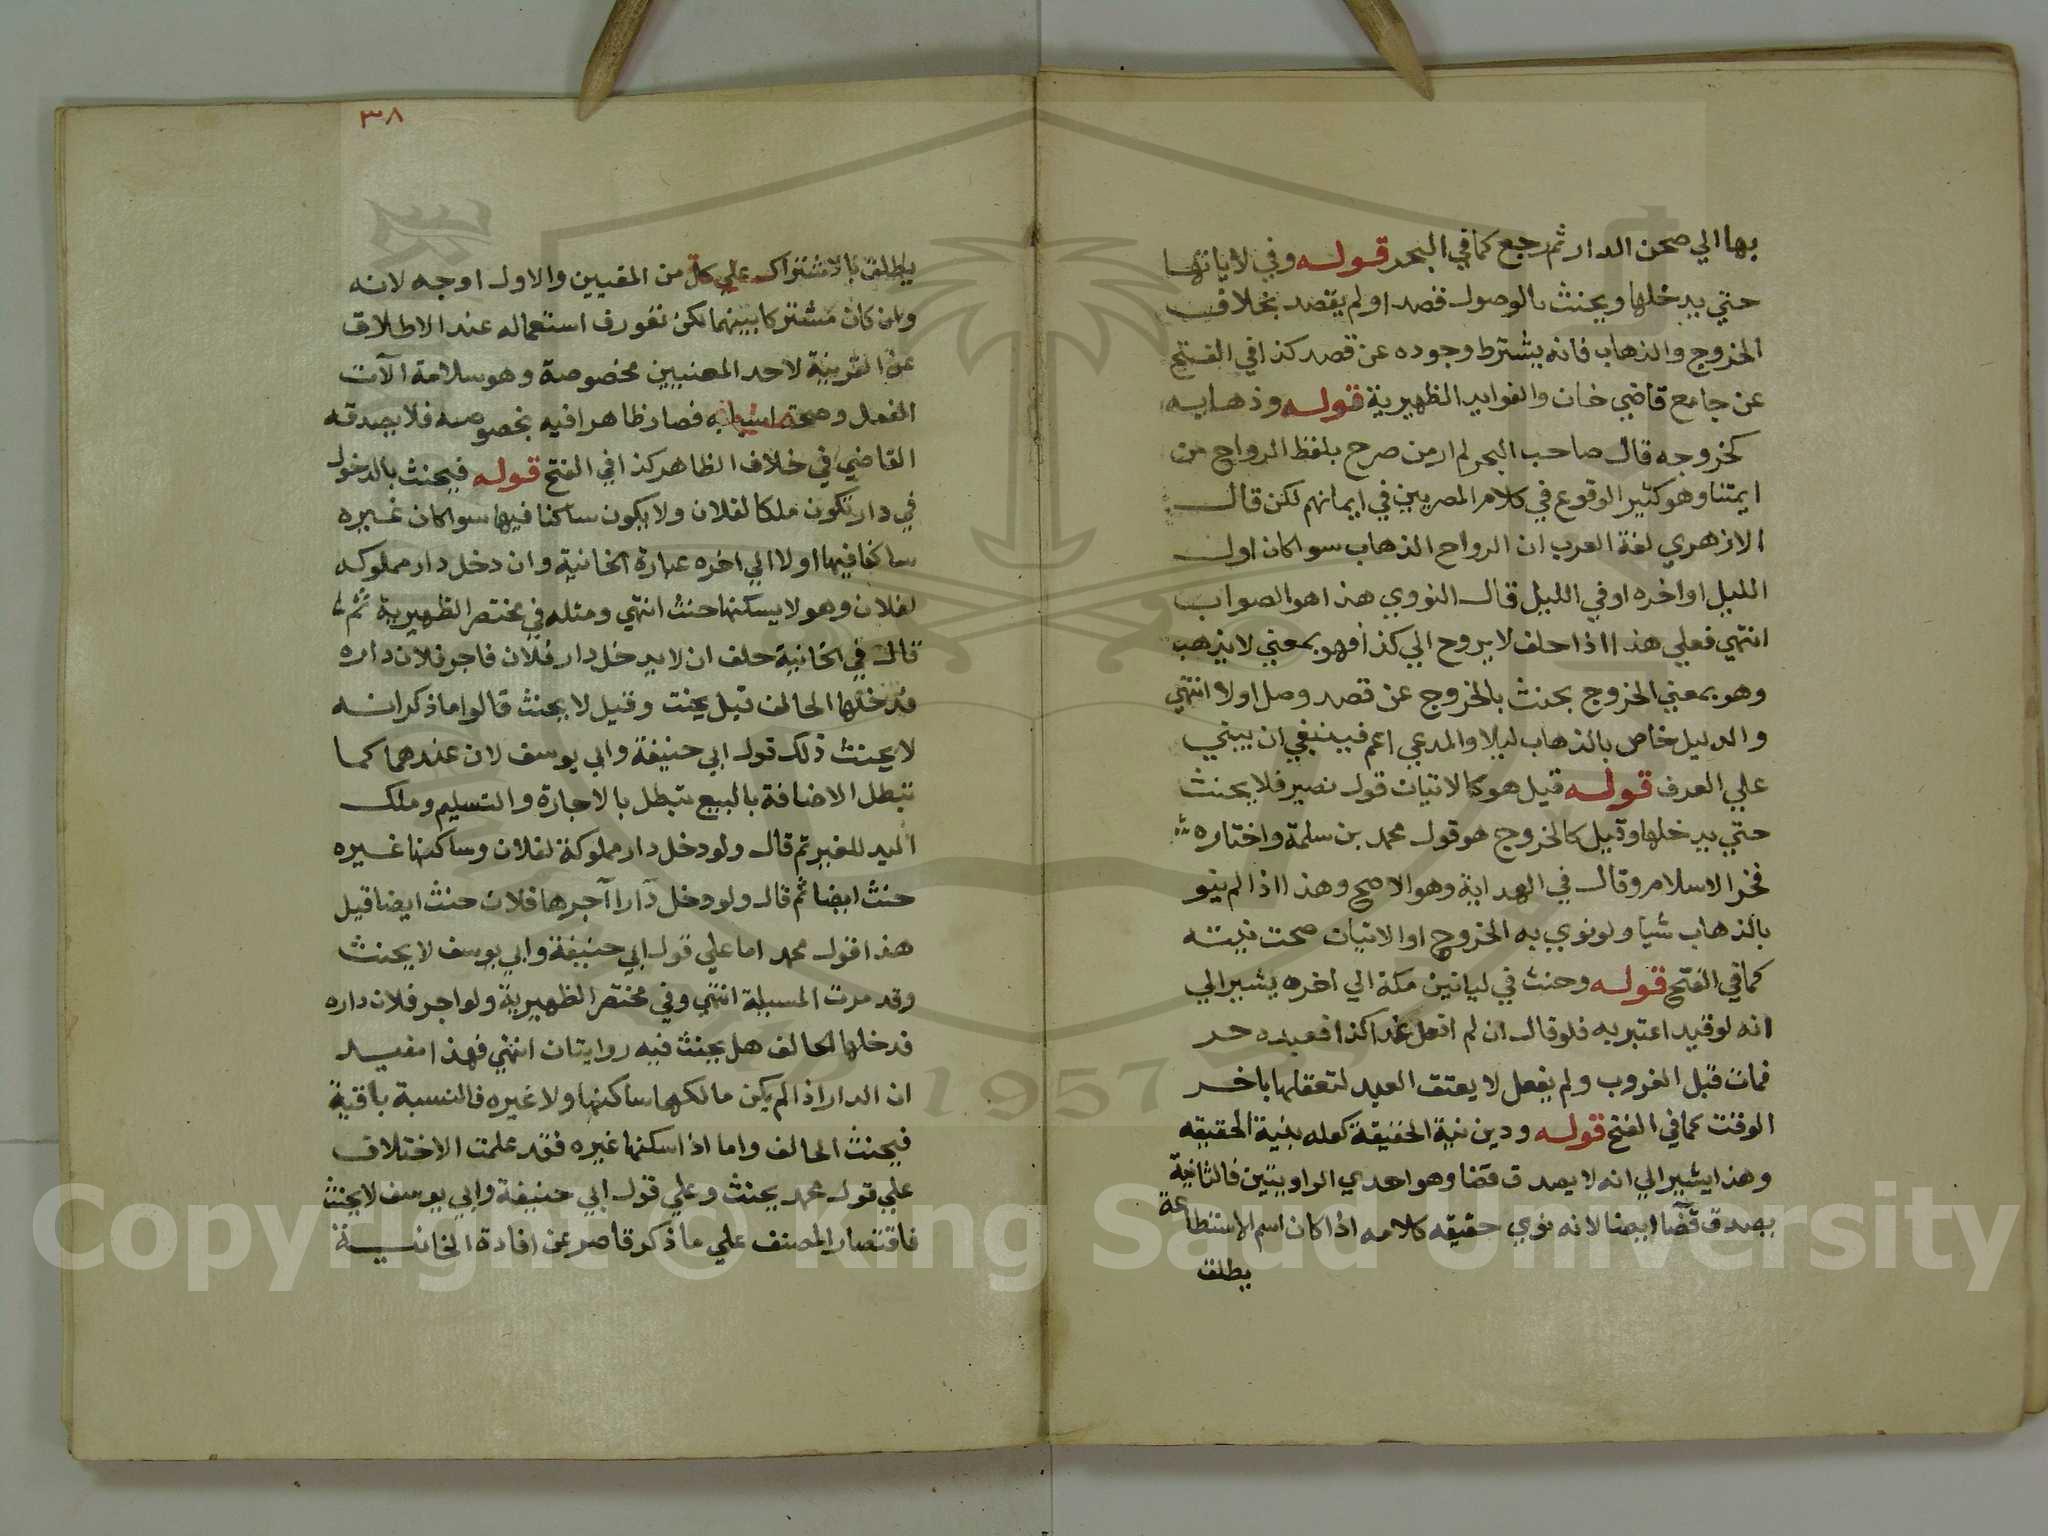 بها الي صحن الدار ثم رجع كما في البحر قوله وفي لا ياتها
حتي يدخلها ويحنث بالوصول قصد او لم يقصد بخلاف
الخروج والذهاب فانه يشترط وجوده عن قصد كذا في الفتح
عن جامع قاضي خان والفوايد الظهيرية قوله وذهابه
كخروجه قال صاحب البحر لم ار من صرح بلفظ الرواح من
ايمتنا وهو كثير الوقوع في كلام المصريين في ايمانهم لكن قال
الازهري لغة العرب ان الرواح الذهاب سوا كان اول
الليل او اخره او في الليل قال النووي هذا هو الصواب
انتهي فعلي هذا اذا حلف لا يروح الي كذا فهو بمعني لا يذهب
وهو بمعني الخروج يحنث بالخروج عن قصد وصل اولا انتهي
والدليل خاص بالذهاب ليلا والمدعي اعم فينبغي ان يبني
علي العرف قوله قيل هو كالاتيان قول نصير فلا يحنث
حتي يدخلها وقيل كالخروج هو قول محمد بن سلمة واختاره
فخر الاسلام وقال في الهداية وهو الاصح وهذا اذا لم ينو
بالذهاب شيا ولو نوي به الخروج او الاتيان صحت نيته
كما في الفتح قوله وحنث في لياتين مكة الي اخره يشير الي
انه لو قيد اعتبر به فلو قال ان لم افعل غدا كذا فعبده حر
فمات قبل الغروب ولم يفعل لا يعتق العبد لتعقلها باخر
الوقت كما في الفتح قوله ودين نية الحقيقة كعله بنية الحقيقه
وهذا يشير الي انه لا يصدق قضا وهو احدي الروايتين فالثانية
يصدق قضا ايضا لانه نوي حقيقه كلامه اذا كان اسم الاستطاعة
يطلق
٣٨
يطلق بالاشتراك علي كل من المقيين والاول اوجه لانه
وان كان مشتركا بينهما لكن تعورف استعماله عند الاطلاق
عن القرينة لاحد المعنيين مخصوصة وهو سلامة الآت
الفعل وصحة اسبابه فصار ظاهرا فيه بخصوصه فلا يصدقه
القاضي في خلاف الظاهر كذا في الفتح قوله فيحنث بالدخول
في دار تكون ملكا لفلان ولا يكون ساكنا فيها سوا كان غيره
ساكنا فيها اولا الي اخره عبارة الخانية وان دخل دار مملوكه
لفلان وهو لا يسكنها حنث انتهي ومثله في مختصر الظهيرية ثم
قال في الخانية حلف ان لا يدخل دار فلان فاجر فلان داره
فدخلها الحالف قيل يحنث وقيل لا يحنث قالوا ما ذكر انه
لا يحنث ذلك قول ابي حنيفة وابي يوسف لان عندهما كما
تبطل الاضافة بالبيع تبطل بالاجارة والتسليم وملك
اليد للغير ثم قال ولو دخل دار مملوكة لفلان وساكنها غيره
حنث ايضا ثم قال ولو دخل دارا آجرها فلان حنث ايضا قيل
هذا قول محمد اما علي قول ابي حنيفة وابي يوسف لا يحنث
وقد مرت المسيلة انتهي وفي مختصر الظهيرية ولو اجر فلان داره
فدخلها الحالف هل يحنث فيه روايتان انتهي فهذا مفيد
ان الدار اذا لم يكن مالكها ساكنها ولا غيره فالنسبة باقية
فيحنث الحالف واما اذا سكنها غيره فقد علمت الاختلاف
علي قول محمد يحنث وعلي قول ابي حنيفة وابي يوسف لا يحنث
فاقتصار المصنف علي ما ذكر قاصر عن افادة الخانية
Copyright © King Saud University
1957